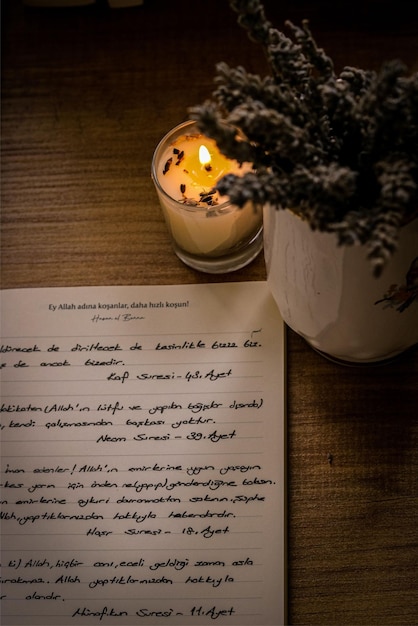 Ey Allah adına koşanlar, daha hızlı koşun!
Hasan el Benna
öldürecek de diriltecek de kesinlikle bizz biz.
ş de ancak bizedir.
Kaf Suresi - 43. Ayet
(Allah'ın lütfu ve yapılan bağışlar dışında)
, kendi çalışmasından başkası yoktur.
Necm Suresi - 39. Ayet
iman edenler! Allah'ın emirlerine uygun yaşayın
kes yarın için inden ne(yapıp)gönderdiğine baksın.
n emirlerine aykırı davranmaktan sakının. Şüphe
Allah, yaptıklarınızdan hakkıyla haberdardır.
Haşr Suresi - 18. Ayet
ki) Allah, hiçbir canı, eceli geldiği zaman asla
bırakmaz. Allah yaptıklarınızdan hakkıyla
r olandır.
Münafikun Suresi - 11. Ayet